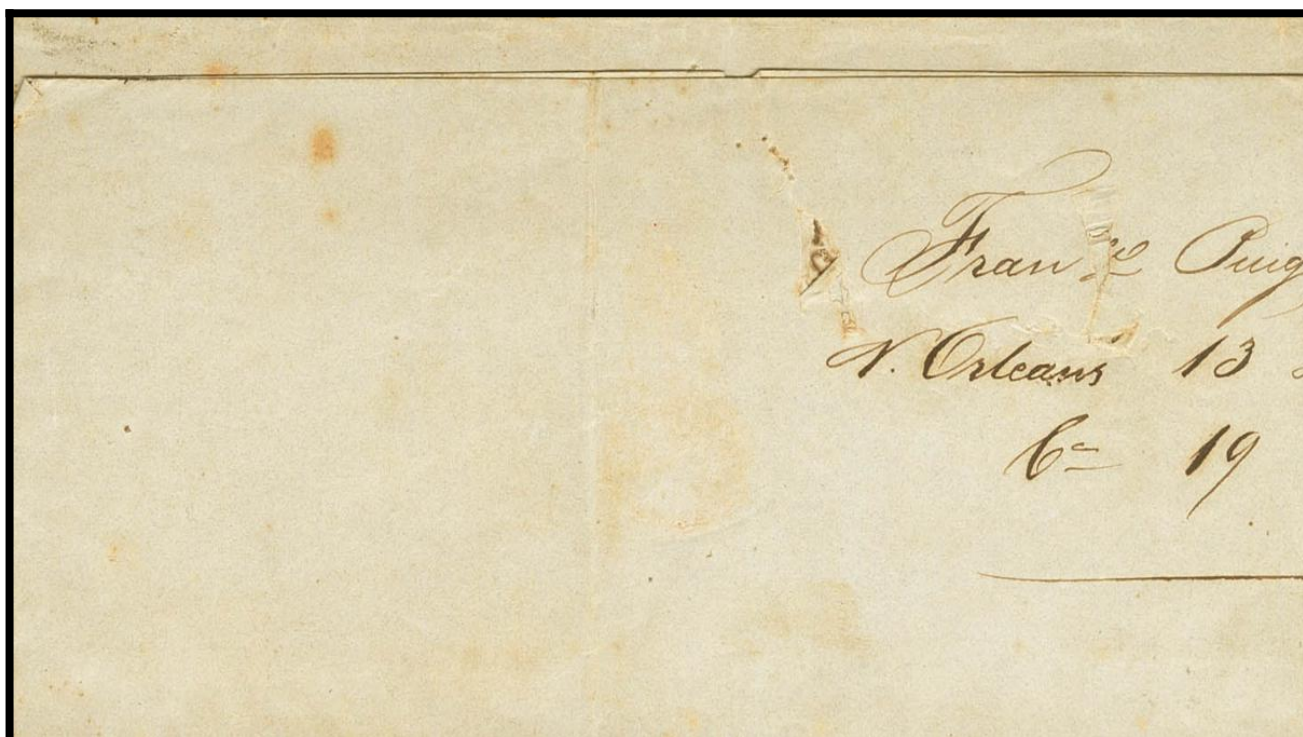 Fran.co Puig
N. Orleans 13
19